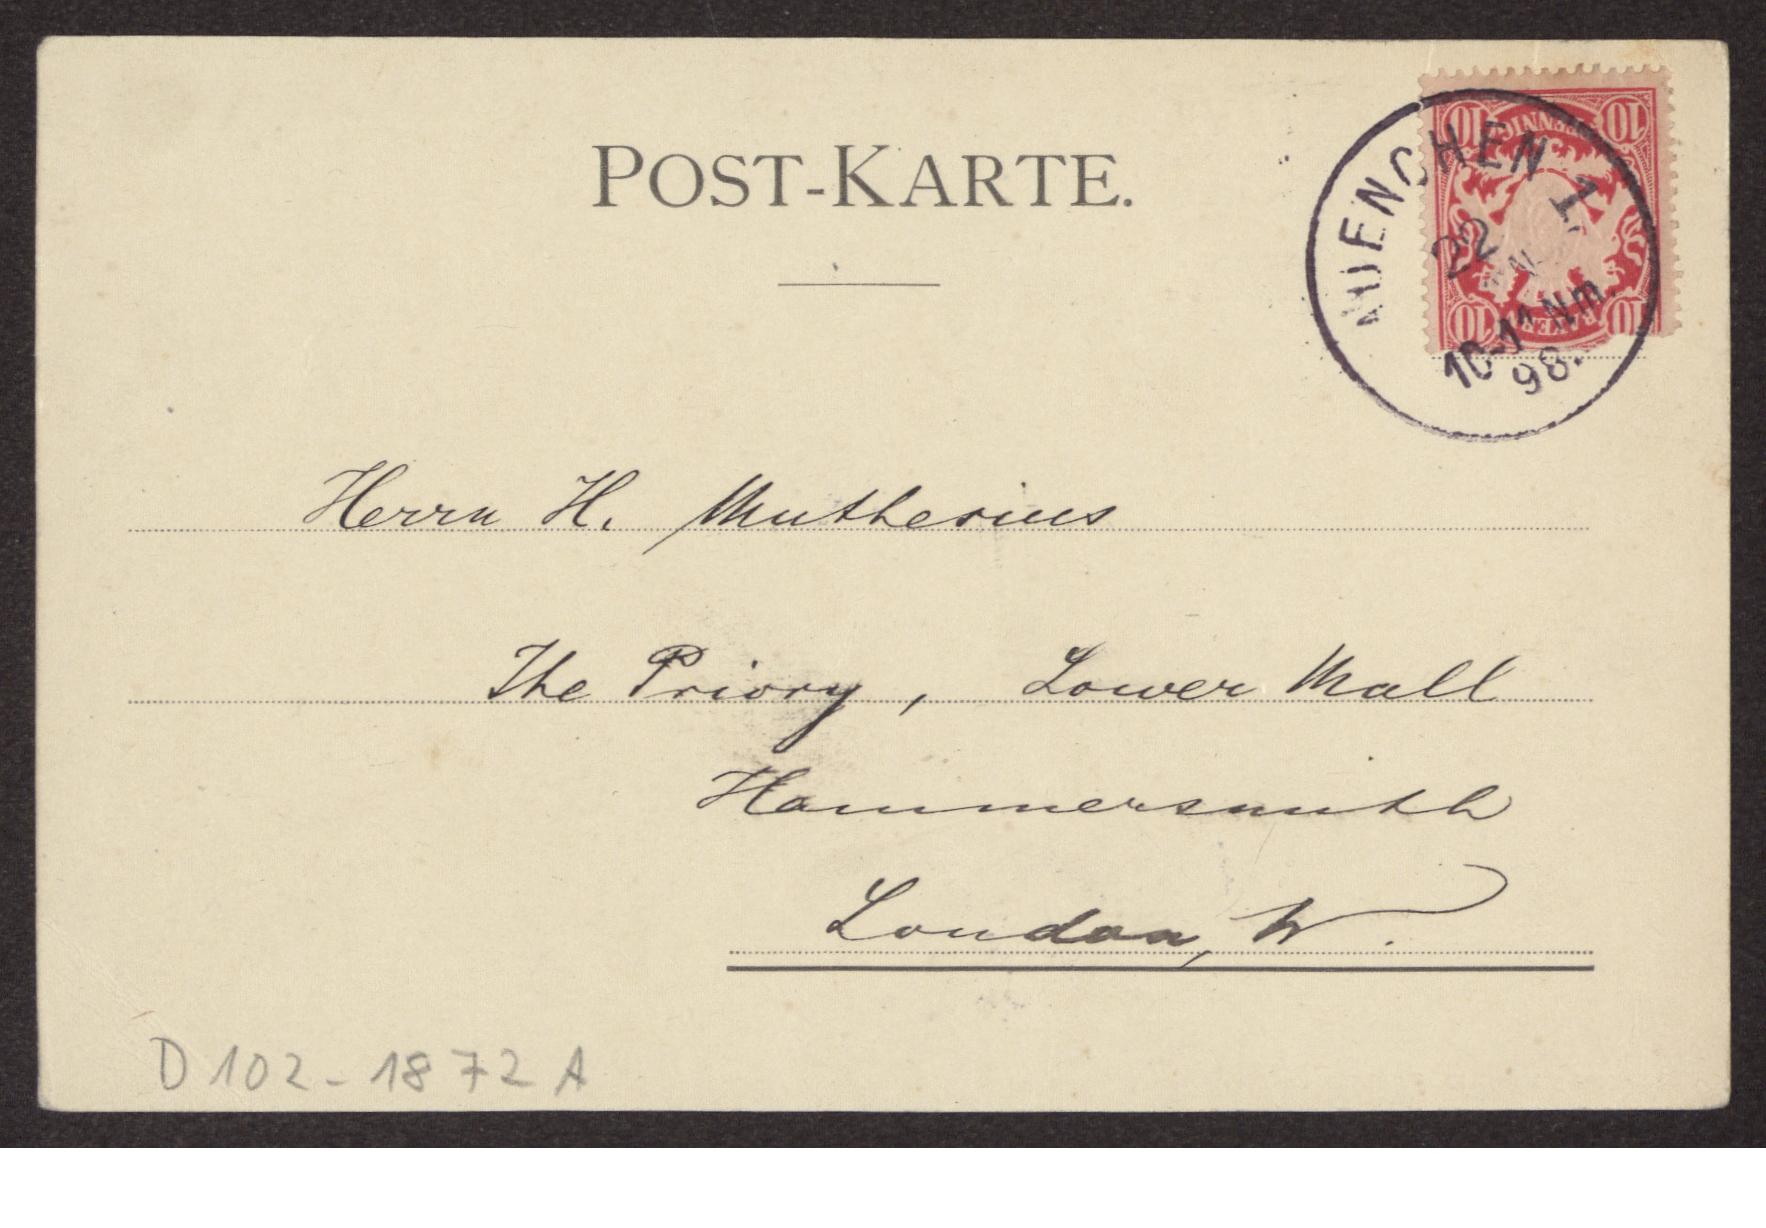 POST-KARTE.
MUENCHEN 1.
22
10-11 Nm.
98.
10 PFENNIG 10
10 BAYERN 10
Herrn H. Muthesius
The Priory, Lower Mall
Hammersmith
London, W.
D 102-1872 A